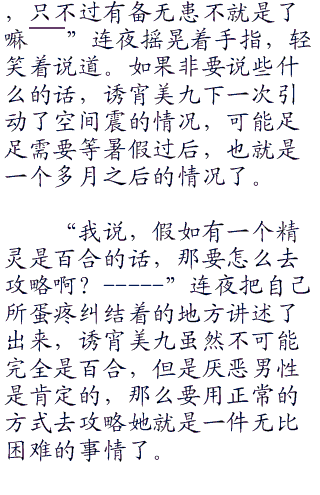 ，只不过有备无患不就是了
嘛——”连夜摇晃着手指，轻
笑着说道。如果非要说些什
么的话，诱宵美九下一次引
动了空间震的情况，可能足
足需要等暑假过后，也就是
一个多月之后的情况了。
“我说，假如有一个精
灵是百合的话，那要怎么去
攻略啊？-----”连夜把自己
所蛋疼纠结着的地方讲述了
出来，诱宵美九虽然不可能
完全是百合，但是厌恶男性
是肯定的，那么要用正常的
方式去攻略她就是一件无比
困难的事情了。